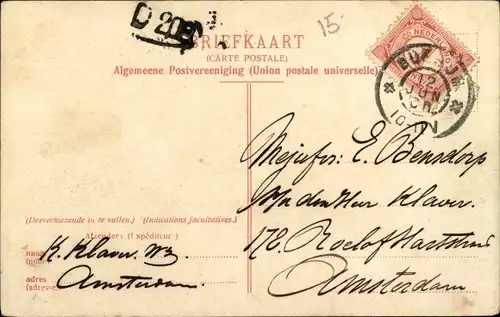 D 20
15-
BRIEFKAART
(CARTE POSTALE)
Algemeene Postvereeniging (Union postale universelle)
NEDERL
BUSSUM
12
JUN
10-11V
Mejufr: E. Bensdorp
den Heer Klaver.
172. Roelof Hartstr
Amsterdam
(Desverkiezende in te vullen.) (Indications facultatives.)
Afzender: (Expéditeur:)
naam
K. Klaver. Wz.
adres
(adresse)
Amsterdam.